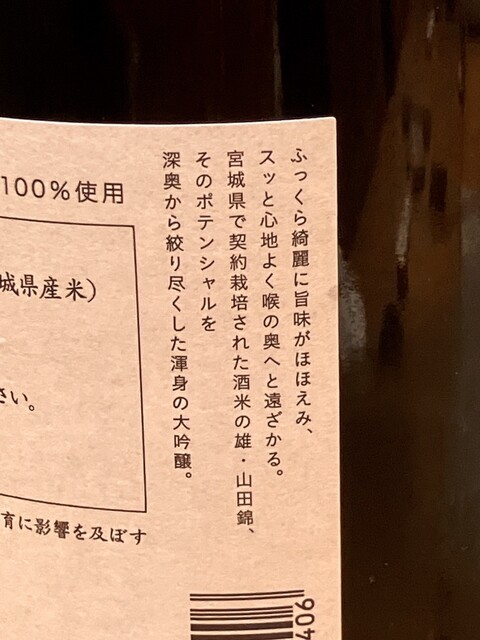 ふっくら綺麗に旨味がほほえみ、
スッと心地よく喉の奥へと遠ざかる。
宮城県で契約栽培された酒米の雄・山田錦、
そのポテンシャルを
深奥から絞り尽くした渾身の大吟醸。
100%使用
城県産米)
さい。
育に影響を及ぼす
406